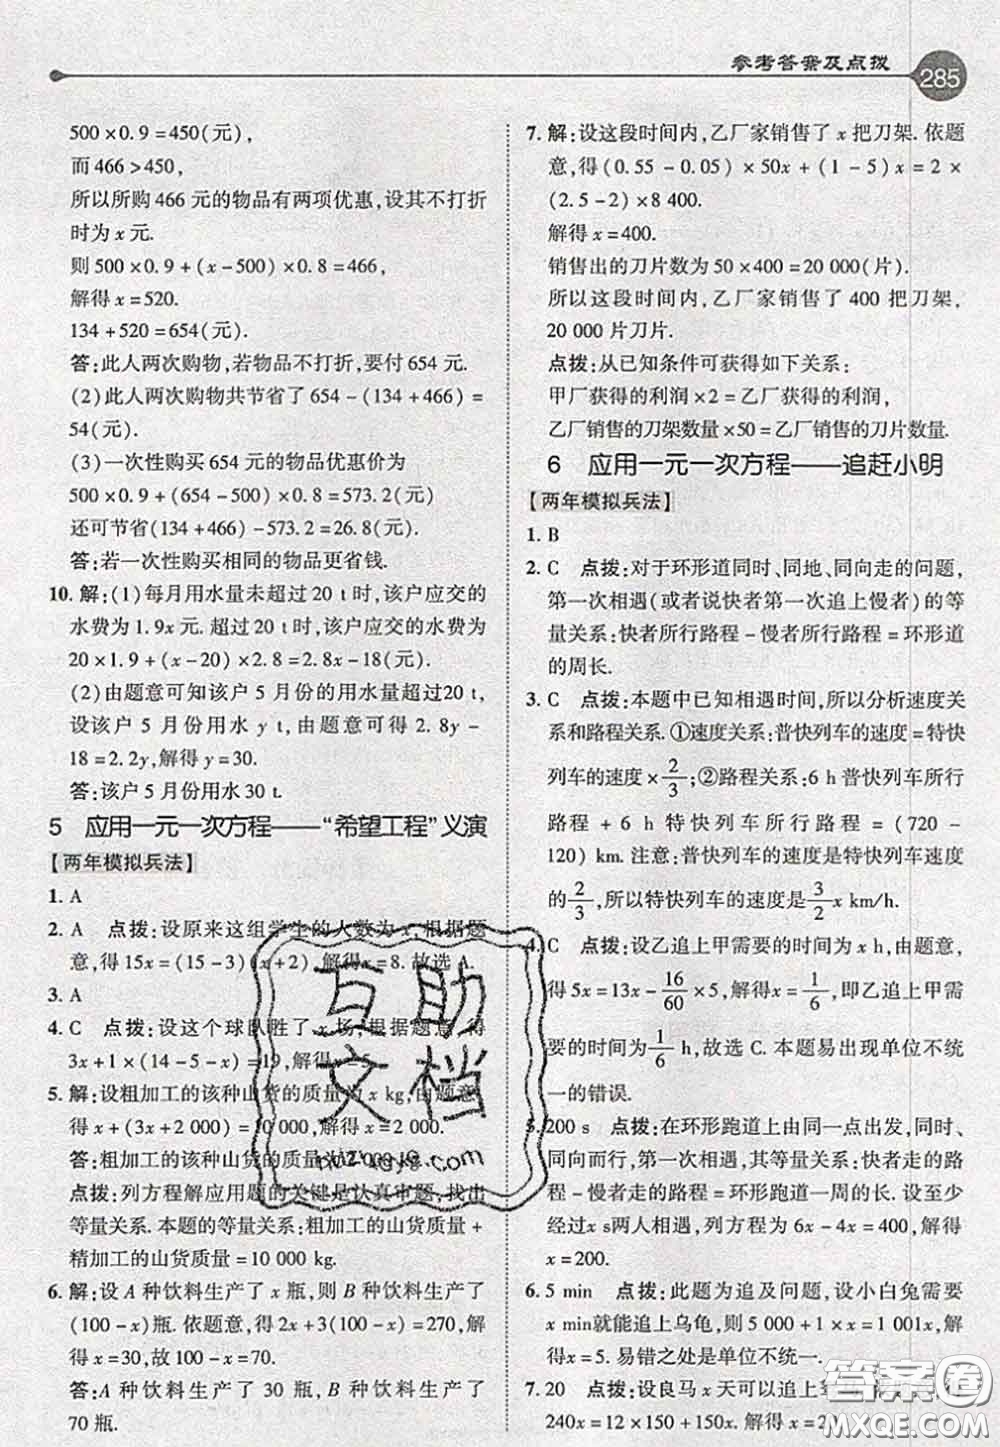 参考答案及点拨 285
500×0.9=450(元),
而466>450,
所以所购466元的物品有两项优惠,设其不打折
时为x元.
则500×0.9+(x-500)×0.8=466,
解得x=520.
134+520=654(元).
答:此人两次购物,若物品不打折,要付654元.
(2)此人两次购物共节省了654-(134+466)=
54(元).
(3)一次性购买654元的物品优惠价为
500×0.9+(654-500)×0.8=573.2(元)
还可节省(134+466)-573.2=26.8(元).
答:若一次性购买相同的物品更省钱.
10.解:(1)每月用水量未超过20t时,该户应交的
水费为1.9x元.超过20t时,该户应交的水费为
20×1.9+(x-20)×2.8=2.8x-18(元).
(2)由题意可知该户5月份的用水量超过20t,
设该户5月份用水yt,由题意可得2.8y-
18=2.2y,解得y=30.
答:该户5月份用水30t.
5 应用一元一次方程——“希望工程”义演
【两年模拟兵法】
1.A
2.A 点拨:设原来这组学生的人数为x,根据题
意,得15x=(15-3)(x+2),解得x=8.故选A.
3.A
4.C 点拨:设这个球队胜了x场,根据题意,得
3x+1×(14-5-x)=19,解得x=5.
5.解:设粗加工的该种山货的质量为x kg,由题意,
得x+(3x+2 000)=10 000,解得x=2 000.
答:粗加工的该种山货的质量为2 000 kg.
点拨:列方程解应用题的关键是认真审题,找出
等量关系.本题的等量关系:粗加工的山货质量+
精加工的山货质量=10 000 kg.
6.解:设A种饮料生产了x瓶,则B种饮料生产了
(100-x)瓶.依题意,得2x+3(100-x)=270,解
得x=30,故100-x=70.
答:A种饮料生产了30瓶,B种饮料生产了
70瓶.
7.解:设这段时间内,乙厂家销售了x把刀架.依题
意,得(0.55-0.05)×50x+(1-5)x=2×
(2.5-2)×8 400.
解得x=400.
销售出的刀片数为50×400=20 000(片).
所以这段时间内,乙厂家销售了400把刀架,
20 000片刀片.
点拨:从已知条件可获得如下关系:
甲厂获得的利润×2=乙厂获得的利润,
乙厂销售的刀架数量×50=乙厂销售的刀片数量.
6 应用一元一次方程——追赶小明
【两年模拟兵法】
1.B
2.C 点拨:对于环形道同时、同地、同向走的问题,
第一次相遇(或者说快者第一次追上慢者)的等
量关系:快者所行路程-慢者所行路程=环形道
的周长.
3.C 点拨:本题中已知相遇时间,所以分析速度关
系和路程关系.①速度关系:普快列车的速度=特快
列车的速度×2/3;②路程关系:6 h普快列车所行
路程+6 h特快列车所行的路程=(720-
120) km.注意:普快列车的速度是特快列车速度
的2/3,所以特快列车的速度是3/2x km/h.
4.C 点拨:设乙追上甲需要的时间为x h,由题意,
得5x=13x-16/60×5,解得x=1/6,即乙追上甲需
要的时间为1/6 h,故选C.本题易出现单位不统
一的错误.
5.200 s 点拨:在环形跑道上由同一点出发,同时、
同向而行,第一次相遇,其等量关系:快者走的路
程-慢者走的路程=环形跑道一周的长.设至少
经过x s两人相遇,列方程为6x-4x=400,解得
x=200.
6.5 min 点拨:此题为追及问题,设小白兔需要
x min就能追上乌龟,则5 000+1×x=1 001x,解
得x=5.易错之处是单位不统一.
7.20 点拨:设良马x天可以追上
240x=12×150+150x.解得x=20
互助
文档
答案圈
MXQE.COM